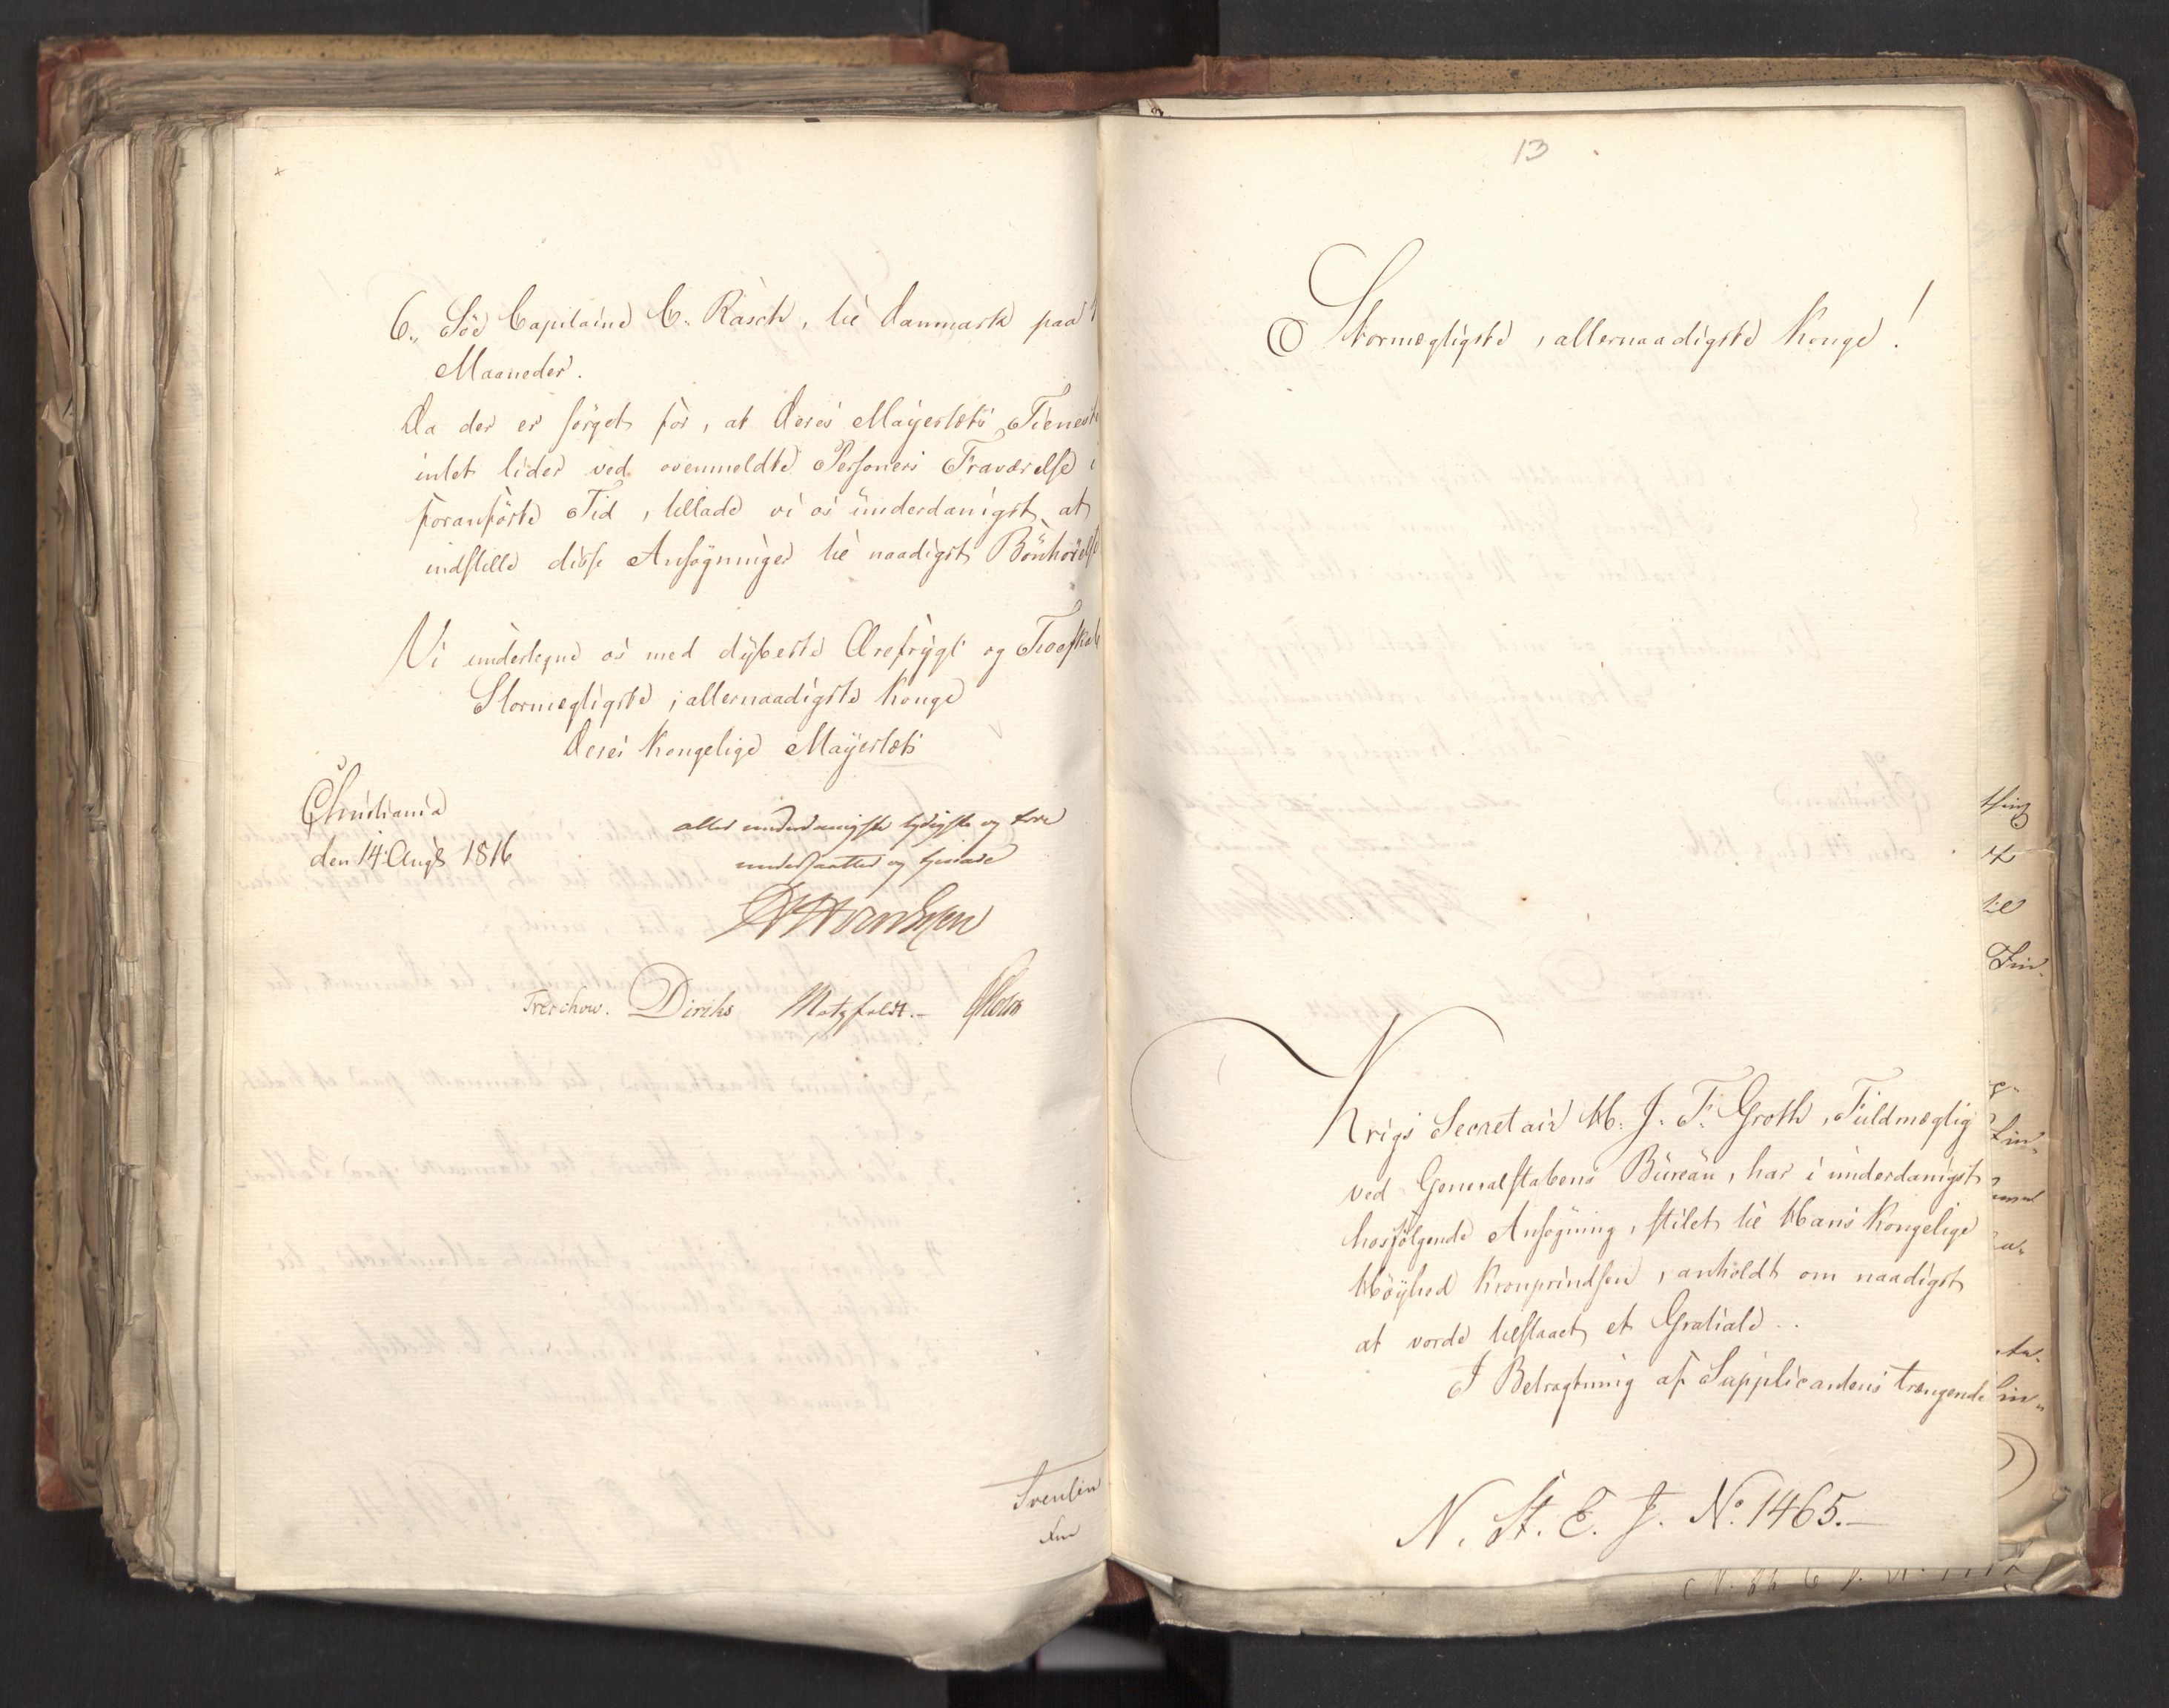 6., Söe Capitaine C. Rasch, til Danmark paa
Maaneder.
Da der er sörget for, at Deres Mayestæts Tieneste
intet lider ved ovenmeldte Personers Fraværelse i
foranförte Tid, tillade vi os underdanigst at
indstille disse Ansögninger til naadigst Bönhörelse
Vi undertegne os med dybeste Ærefrygt og Troeskab
Stormægtigste, allernaadigste Konge
Deres Kongelige Mayestæts
Christiania
den 14 Augs 1816
aller underdanigste lydigste og troe
undersaatter og tienere
Treschow. Diriks Motzfeldt.
13
Stormægtigste, allernaadigste Konge!
Krigs Secretair H. J. F. Groth, Fuldmægtig
ved Generalstabens Büreau, har i underdanigst
hosfölgende Ansögning, stilet til Hans Kongelige
Höyhed Kronprindsen, anholdt om naadigst
at vorde tilstaaet et Gratiale..
I Betragtning af Supplicantens trængende
N. St. E. J. No. 1465.